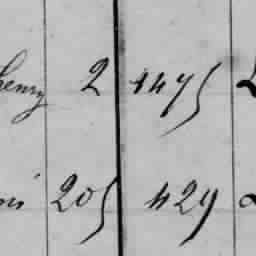 henry 2 1475
205 429